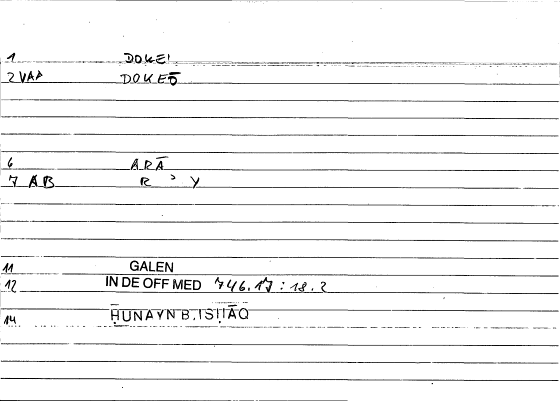 1 DOKEI
2 VAA DOKEŌ
6 ARĀ
7 AB R ʾ Y
11 GALEN
12 IN DE OFF MED 746.17 : 18.2
14 ḤUNAYN B. ISḤĀQ